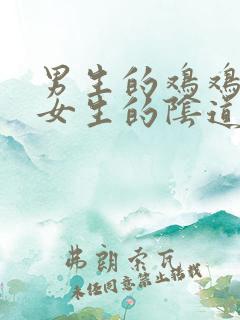 男生的鸡鸡
女生的阴道
弗朗索瓦
未经同意禁止转载